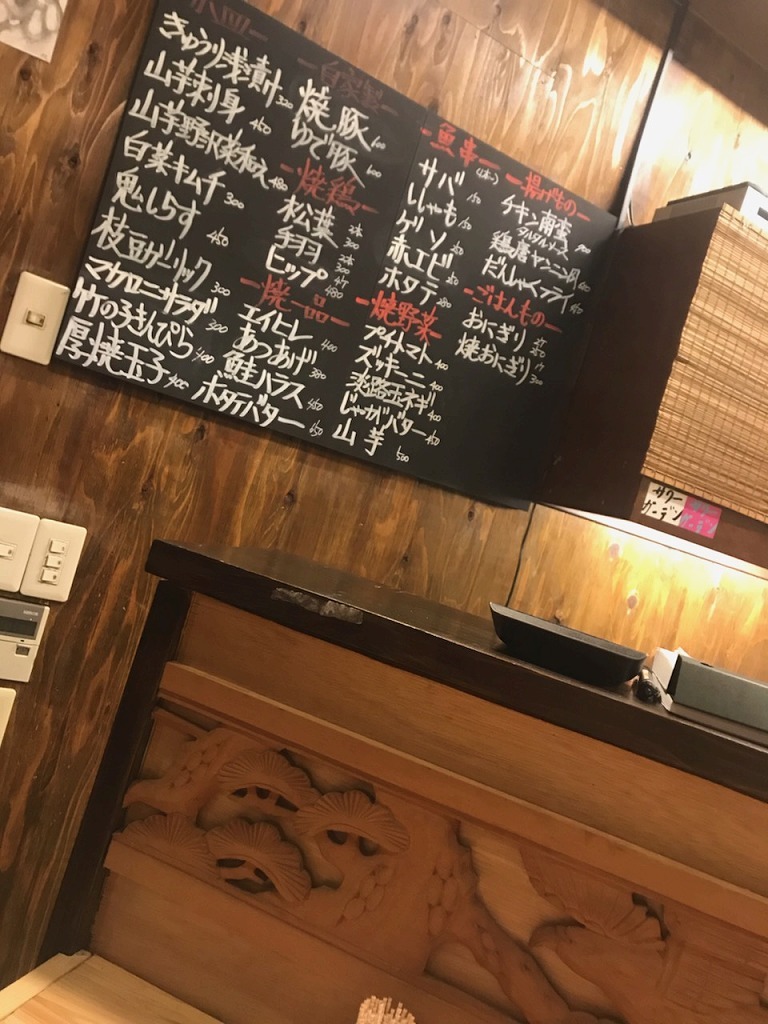 小皿
きゅうり浅漬け 300
山芋刺身 450
山芋野沢菜和え 480
白菜キムチ 300
鬼しらす 450
枝豆ガーリック 300
マカロニサラダ 300
竹の子きんぴら 400
厚焼玉子 400
-自家製-
焼豚 600
ゆで豚 600
-焼鶏-
松葉 2本 300
手羽 2本 300
ヒップ 480
-焼一品-
エイヒレ 400
あつあげ 380
鮭ハラス 450
ホタテバター 650
-魚串-
サバ 150
ししゃも
ゲソ
赤エビ
ホタテ
-焼野菜-
プチトマト 400
ズッキーニ 400
淡路玉ネギ 400
じゃがバター 450
山芋 500
-揚げもの-
チキン南蛮
タルタルソース
鶏唐ヤンニョム風
だんしゃくフライ
-ごはんもの-
おにぎり
焼おにぎり 300
サワー
ガーデン
サワー
ガーデン